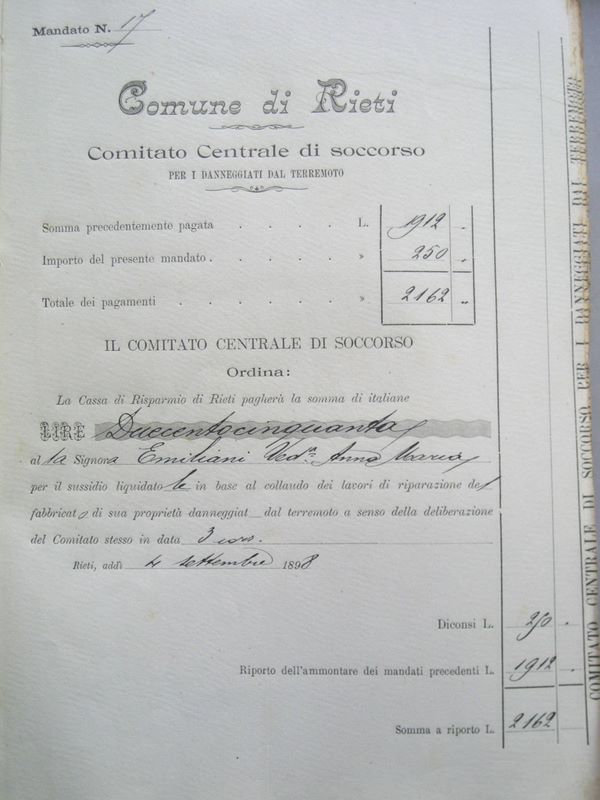 Mandato N. 17
Comune di Rieti
Comitato Centrale di soccorso
PER I DANNEGGIATI DAL TERREMOTO
Somma precedentemente pagata . . . . L. 1912 „
Importo del presente mandato . . . . » 250 „
Totale dei pagamenti . . . . . . » 2162 „
IL COMITATO CENTRALE DI SOCCORSO
Ordina:
La Cassa di Risparmio di Rieti pagherà la somma di italiane
LIRE Duecentocinquanta
al la Signora Emiliani Ved.ª Anna Maria
per il sussidio liquidato le in base al collaudo dei lavori di riparazione del
fabbricato di sua proprietà danneggiat dal terremoto a senso della deliberazione
del Comitato stesso in data 3 corr.
Rieti, addì 4 settembre 1898
Diconsi L. 250 „
Riporto dell'ammontare dei mandati precedenti L. 1912 „
Somma a riporto L. 2162
COMITATO CENTRALE DI SOCCORSO PER I DANNEGGIATI DAL TERREMOTO